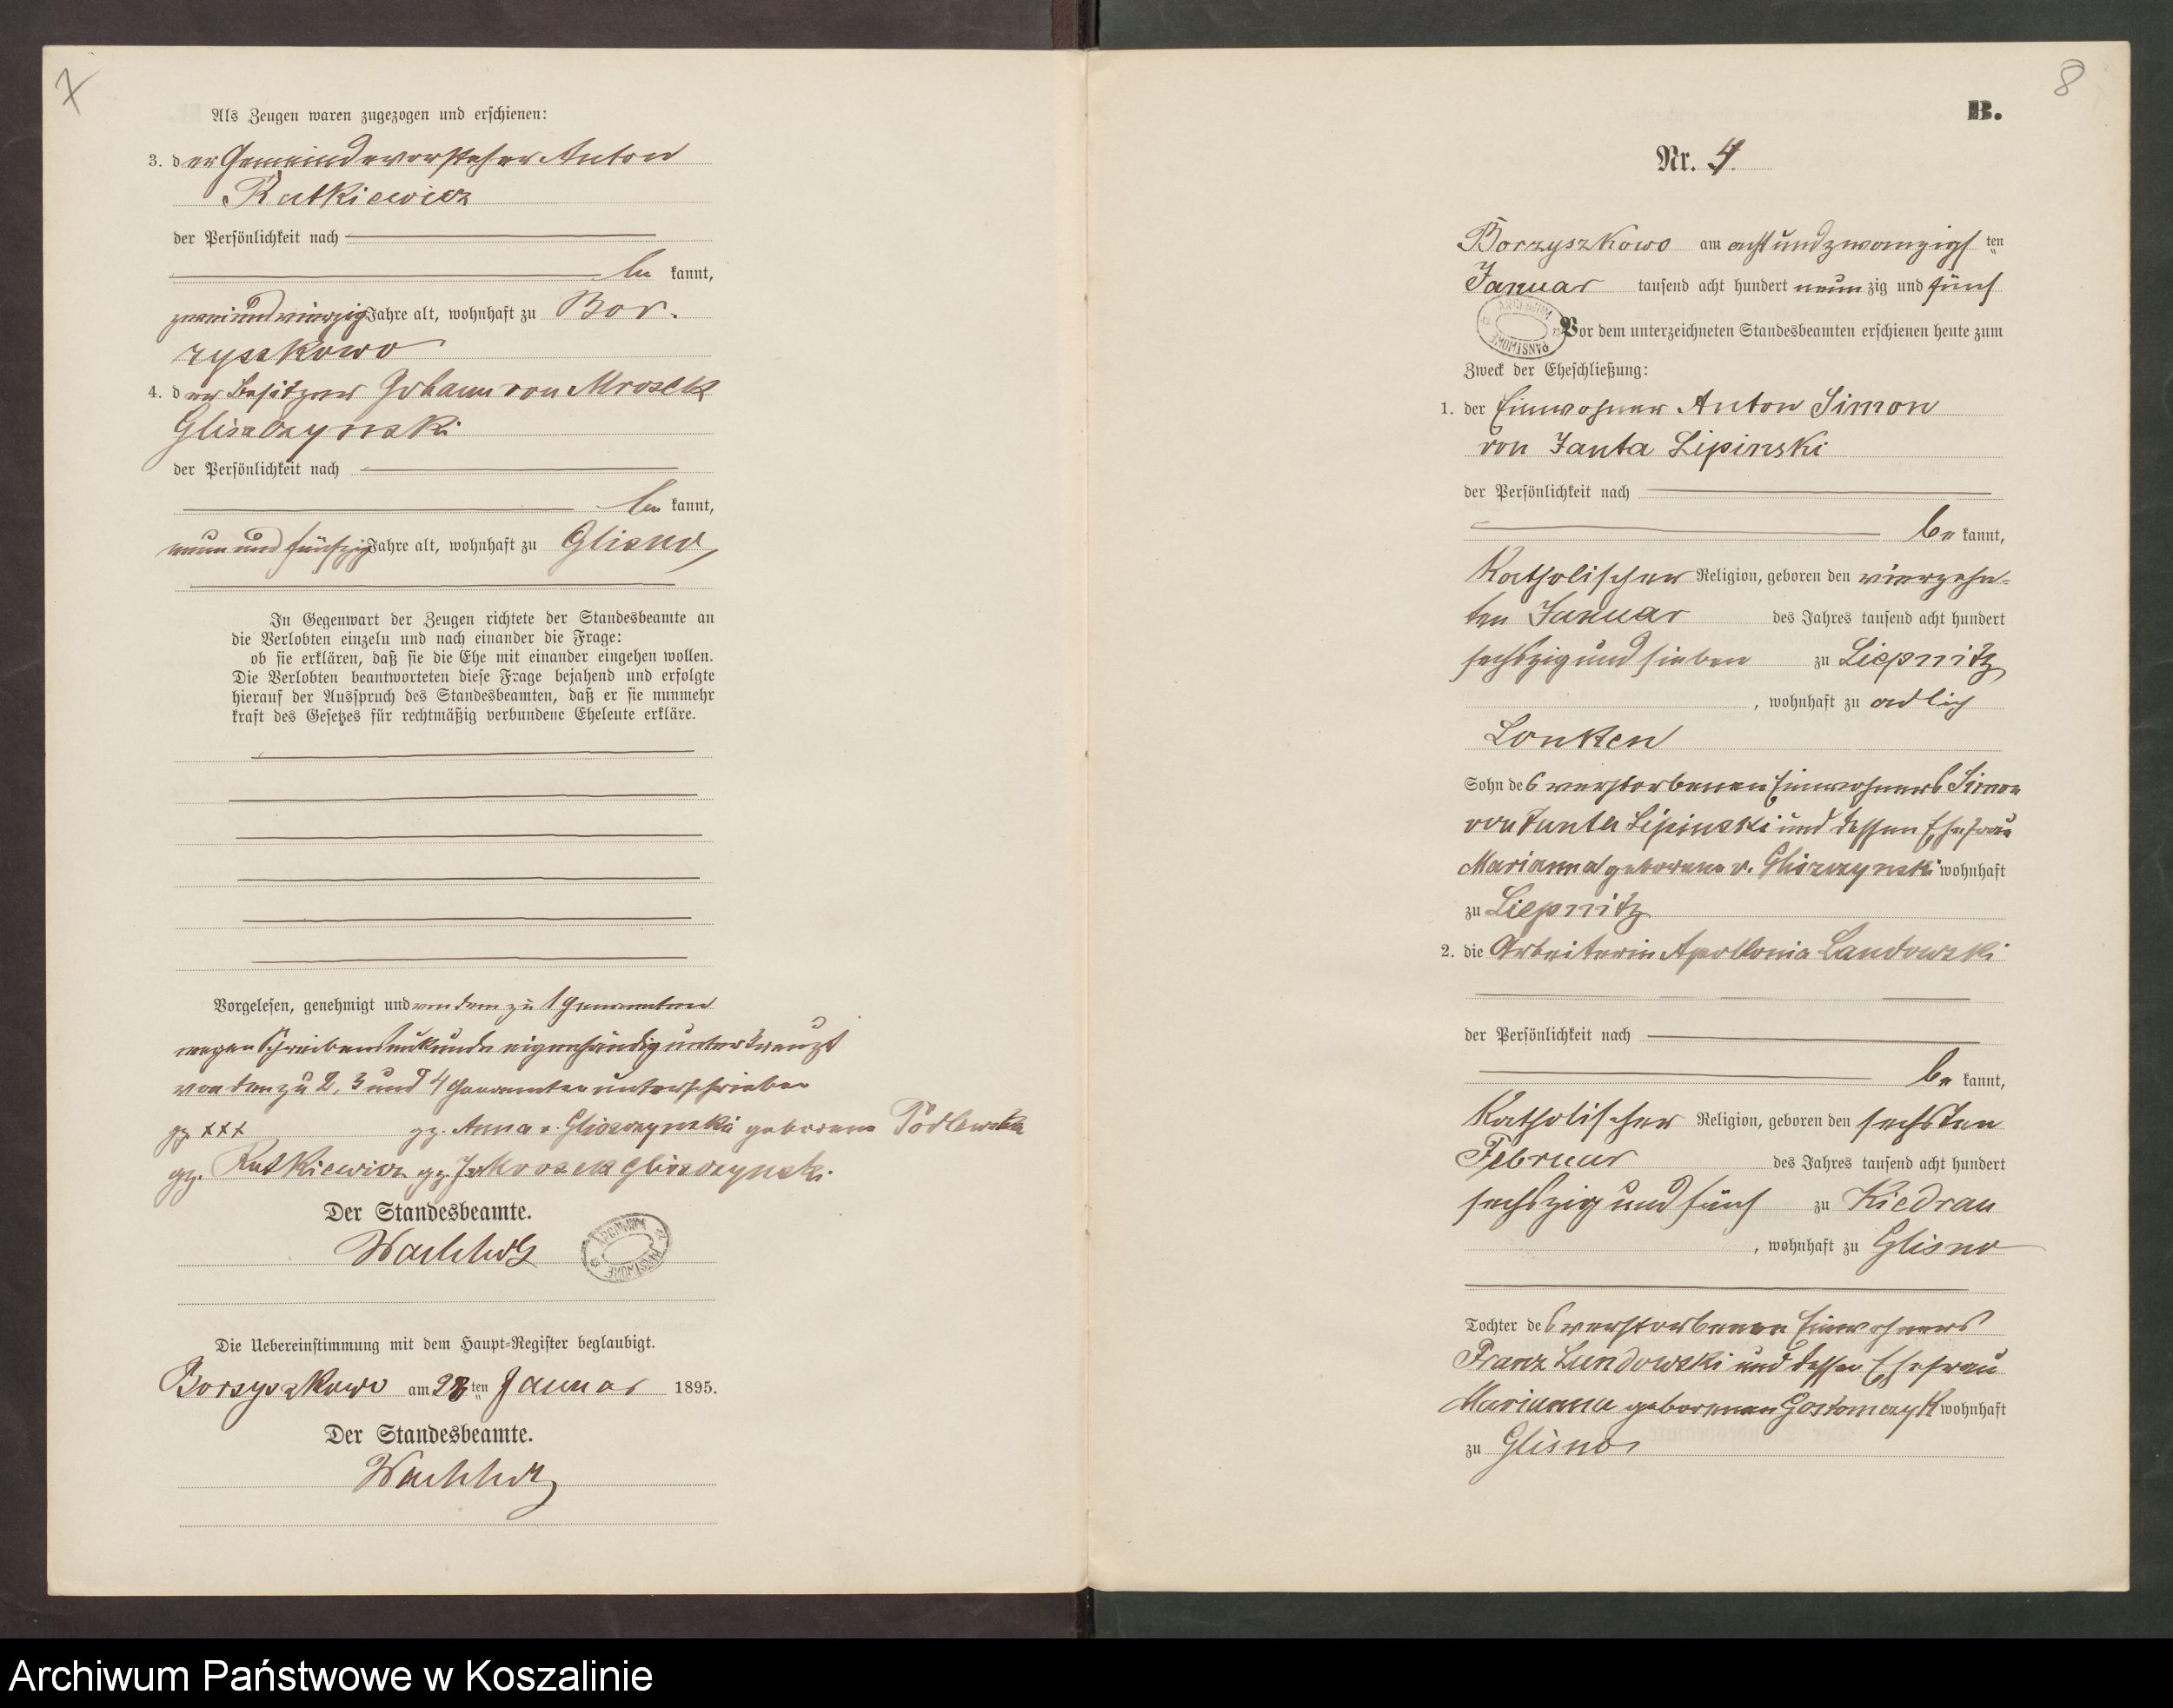 7
Als Zeugen waren zugezogen und erschienen:
3. der Gemeindevorsteher Anton
Rutkiewicz
der Persönlichkeit nach
be kannt,
zweiundvierzig Jahre alt, wohnhaft zu Bor-
zyszkowo
4. der Besitzer Johann von Mrosek
Gliszczynski
der Persönlichkeit nach
be kannt,
neun und fünfzig Jahre alt, wohnhaft zu Glisno,
In Gegenwart der Zeugen richtete der Standesbeamte an
die Verlobten einzeln und nach einander die Frage:
ob sie erklären, daß sie die Ehe mit einander eingehen wollen.
Die Verlobten beantworteten diese Frage bejahend und erfolgte
hierauf der Ausspruch des Standesbeamten, daß er sie nunmehr
kraft des Gesetzes für rechtmäßig verbundene Eheleute erkläre.
Vorgelesen, genehmigt und von dem zu 1 Genannten
wegen Schreibensunkunde eigenhändig unterkreuzt
von den zu 2, 3 und 4 Genannten unterschrieben
gz. xxx gz. Anna v. Gliszczynski geborene Podlewska
gz. Rutkiewicz gz. J v Mrosek Gliszczynski.
Der Standesbeamte.
Wachholz
ARCHIWUM PAŃSTWOWE
Die Uebereinstimmung mit dem Haupt-Register beglaubigt.
Borzyszkowo am 28ten Januar 1895.
Der Standesbeamte.
Wachholz
8
B.
Nr. 4.
Borzyszkowo am achtundzwanzigsten
Januar tausend acht hundert neunzig und fünf
ARCHIWUM PAŃSTWOWE
Vor dem unterzeichneten Standesbeamten erschienen heute zum
Zweck der Eheschließung:
1. der Einwohner Anton Simon
von Janta Lipinski
der Persönlichkeit nach
be kannt,
Katholischer Religion, geboren den vierzehn-
ten Januar des Jahres tausend acht hundert
sechszig und sieben zu Liepnitz
, wohnhaft zu adlich
Lonken
Sohn des verstorbenen Einwohners Simon
von Janta Lipinski und dessen Ehefrau
Marianna geborene v. Gliszczynski wohnhaft
zu Liepnitz
2. die Arbeiterin Apollonia Landowski
der Persönlichkeit nach
be kannt,
Katholischer Religion, geboren den sechsten
Februar des Jahres tausend acht hundert
sechszig und fünf zu Kiedrau
, wohnhaft zu Glisno
Tochter des verstorbenen Einwohners
Franz Landowski und dessen Ehefrau
Marianna geborenen Gostomczyk wohnhaft
zu Glisno
Archiwum Państwowe w Koszalinie